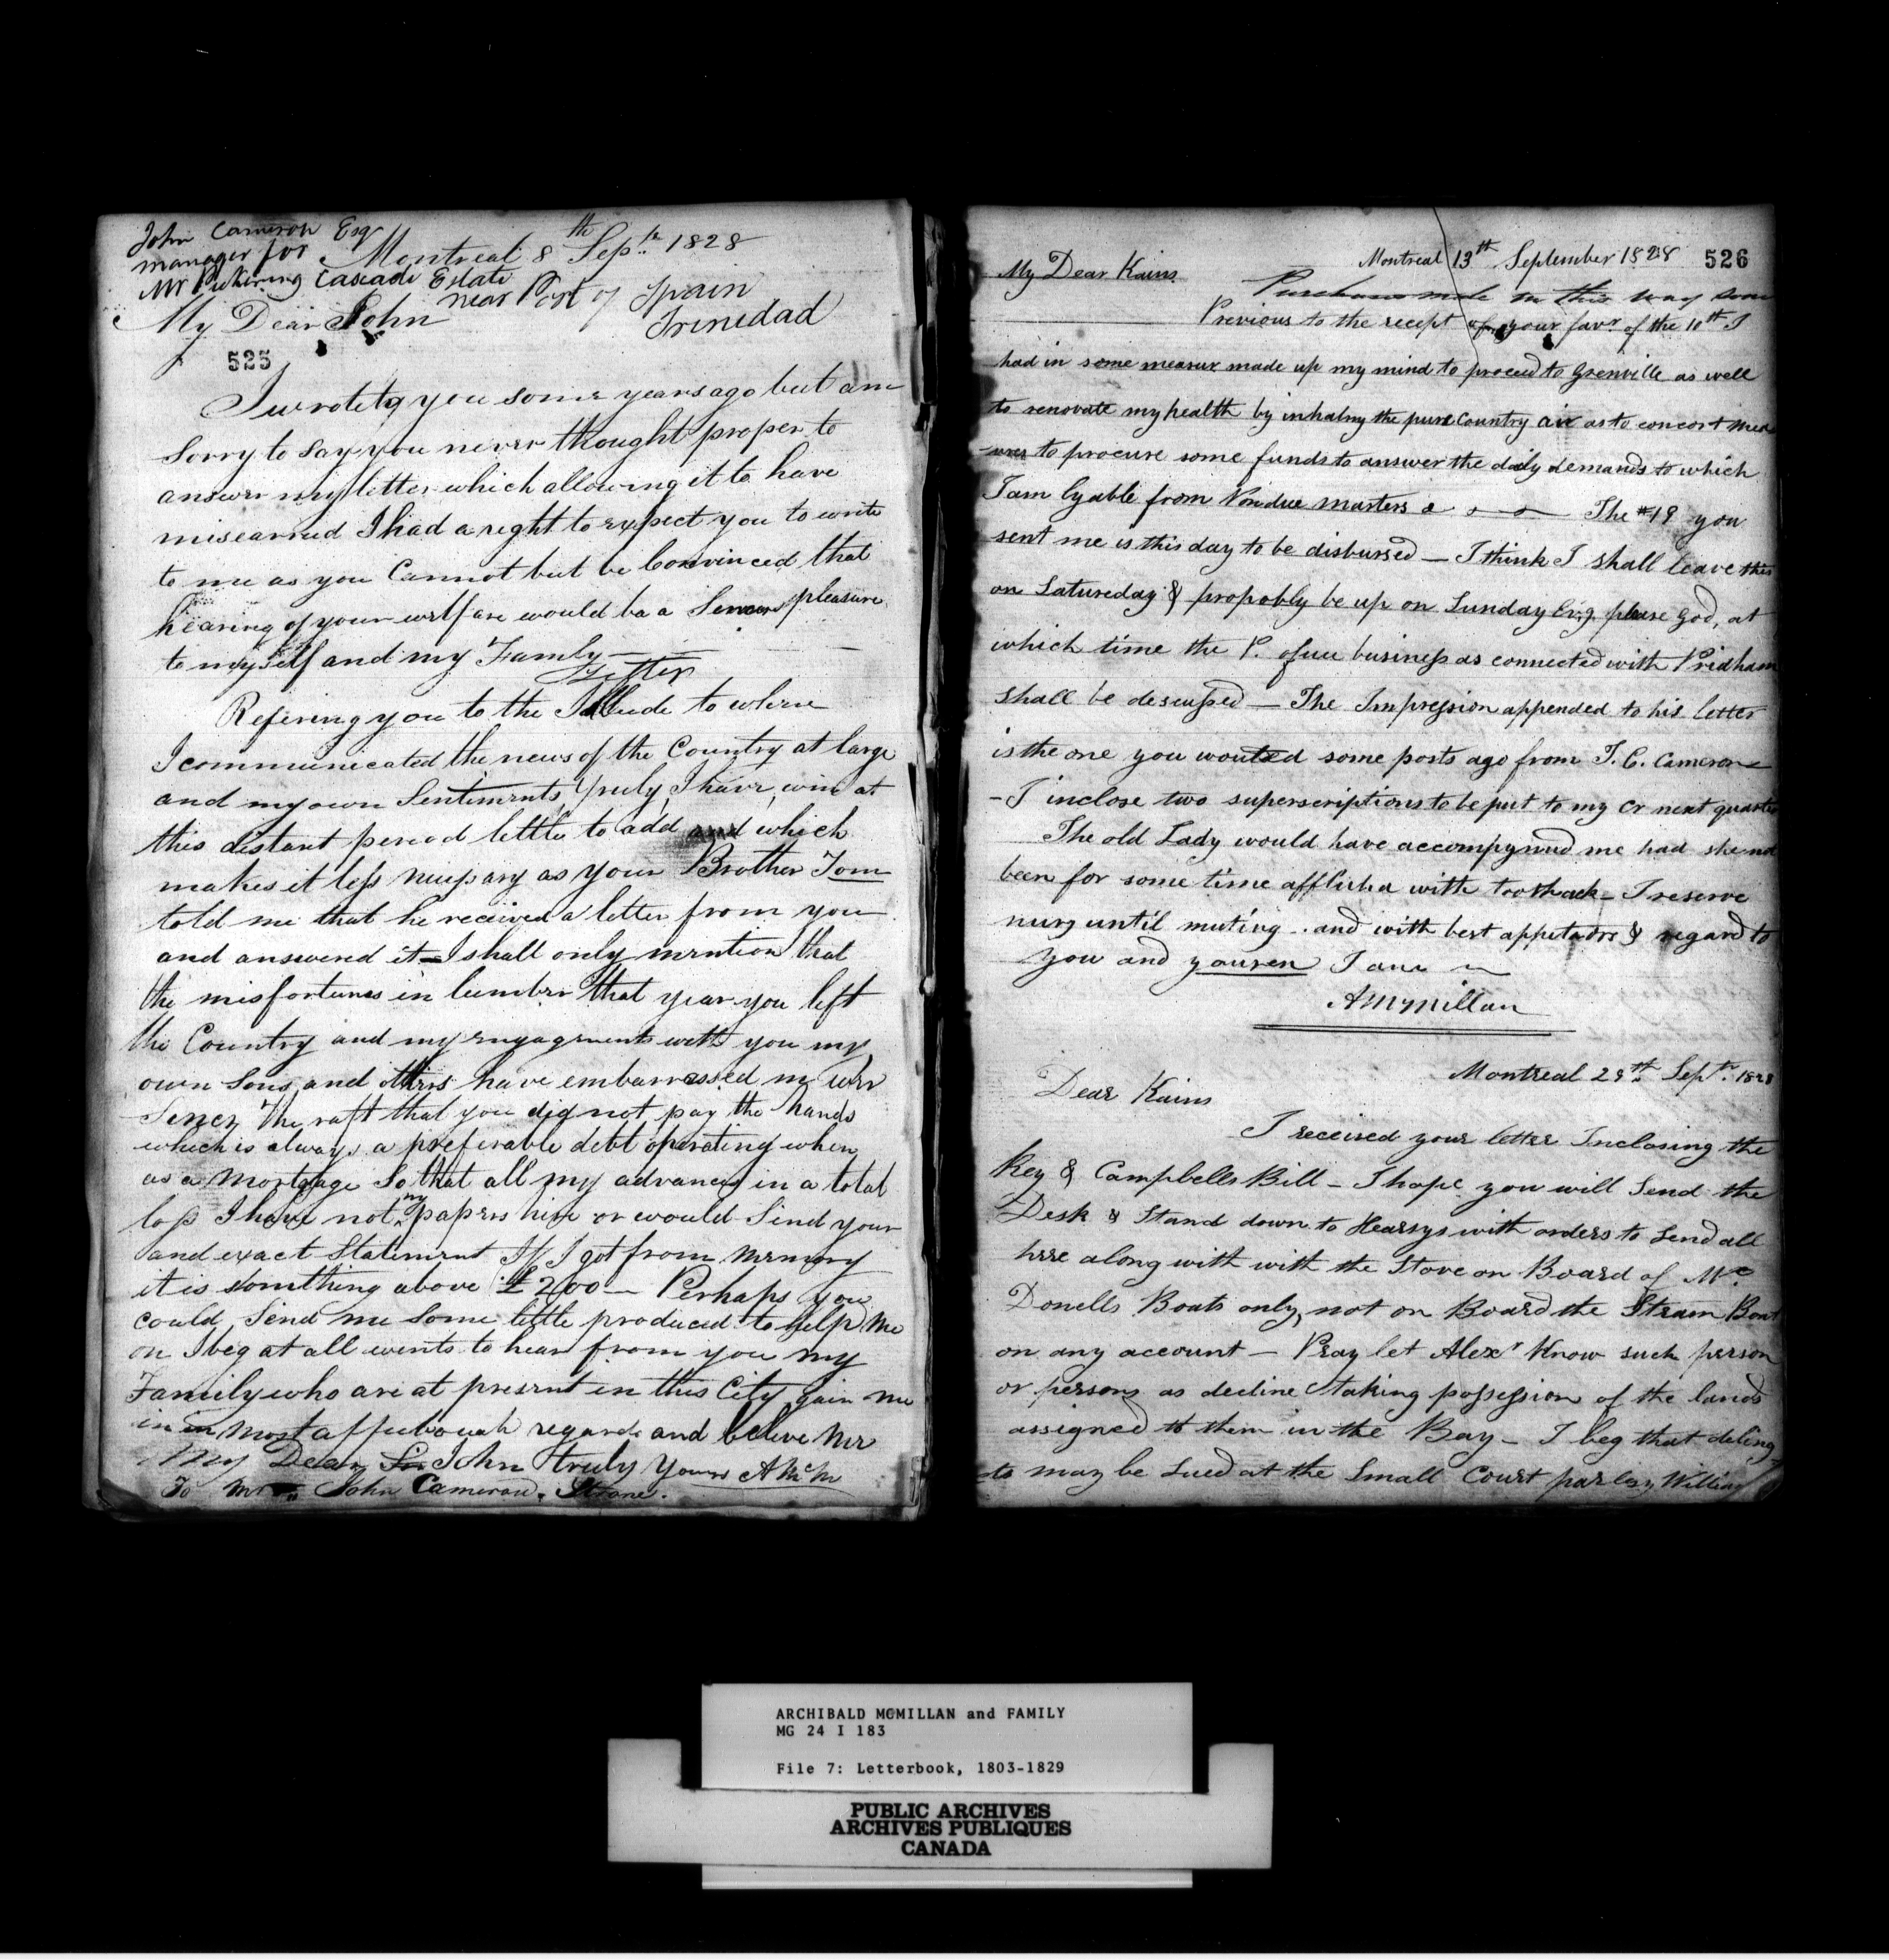 John Cameron Esqr
manager for
Mr Pickering Cascade Estate
near Port of Spain
Trinedad
Montreal 8th Septr 1828
My Dear John
525
I wrote to you some years ago but am
sorry to say you never thought proper to
answer my letter which allowing it to have
miscarried I had a right to expect you to write
to me as you Cannot but be Convinced that
hearing of your welfare would be a pleasure
to myself and my Family —
Letter
Refering you to the Allude to where
I communicated the news of the Country at large
and my own Sentiments truly, I have, even at
this distant period little to add and which
makes it less necessary as your Brother Tom
told me that he received a letter from you
and answered it — I shall only mention that
the misfortunes in lumber that year you left
the Country and my engagements with you my
own Sons and others have embarrassed me ever
Since, The raft that you did not pay the hands
which is always a preferable debt operating when
as a Mortgage So that all my advances in a total
loss I have not my papers here or would Send your
and exact Statement If I got from memory
it is something above £200 — Perhaps you
could Send me Some little produced to help me
on I beg at all events to hear from you my
Family who are at present in this City gain me
in in most affectionate regards and believe me
My Dear Sir John truly yours A McM
To Mr John Cameron. Strone.
526
Montreal 13th September 1828
My Dear Kains
Purchase made in this way some
Previous to the recept of your favr. of the 10th I
had in some measur made up my mind to proceed to Grenville as well
to renovate my health by inhalng the pure Country air as to concert mea
-sures to procure some funds to answer the daily demands to which
I am lyable from Vendue masters & — The #19 you
sent me is this day to be disbursed — I think I shall leave this
on Satureday & propobly be up on Sunday Evg. please God, at
which time the P. ofice business as connected with Pridham
shall be descussed — The Impression appended to his letter
is the one you wanted some posts ago from J. C. Cameron
- I inclose two superscriptions to be put to my Cr next quarter
The old Lady would have accompynied me had she not
been for some time afflicted with toothack — I reserve
until meeting .. and with best & regard to
you and I am
AMcMillan
Montreal 29th Septr. 1828
Dear Kains
I received your letter Inclosing the
Key & Campbells Bill — I hope you will Send the
Desk & Stand down to Hearsys with orders to Send all
here along with with the Stove on Board of Mc
Donells Boats only, not on Board the Steam Boat
on any account — Pray let Alexr Know such person
or persons as decline taking possession of the lands
assigned to them in the Bay — I beg that delinq
ts may be Sued at the Small Court William
ARCHIBALD MCMILLAN and FAMILY
MG 24 I 183
File 7: Letterbook, 1803-1829
PUBLIC ARCHIVES
ARCHIVES PUBLIQUES
CANADA